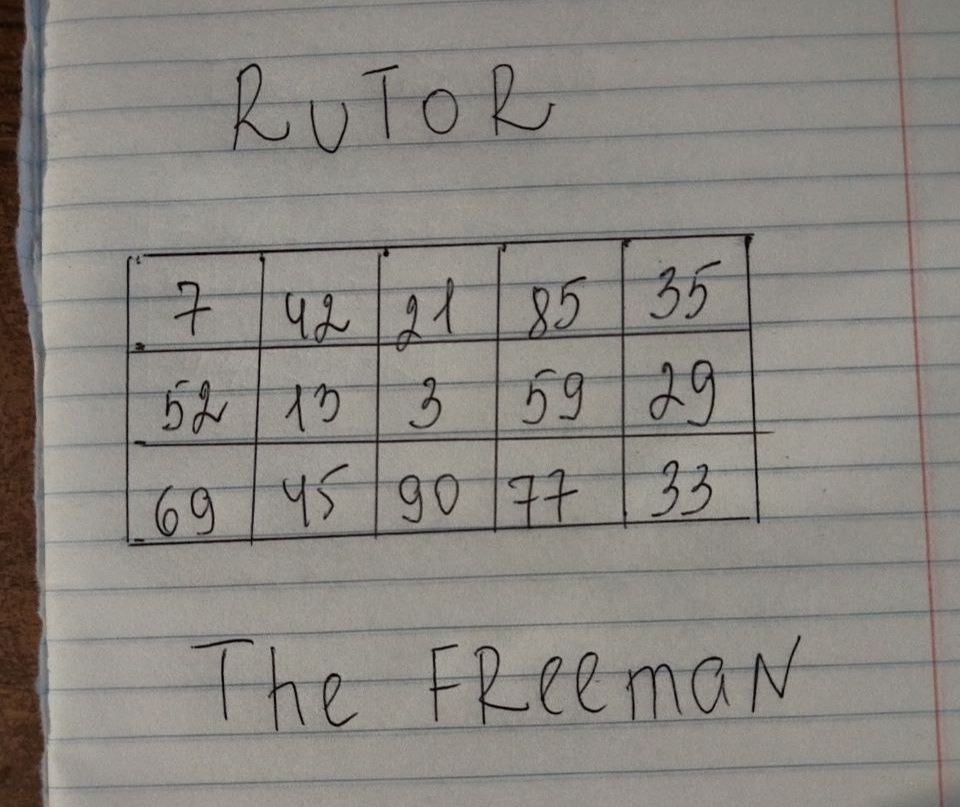 RUTOR
7 42 21 85 35
52 13 3 59 29
69 45 90 77 33
The FReemaN